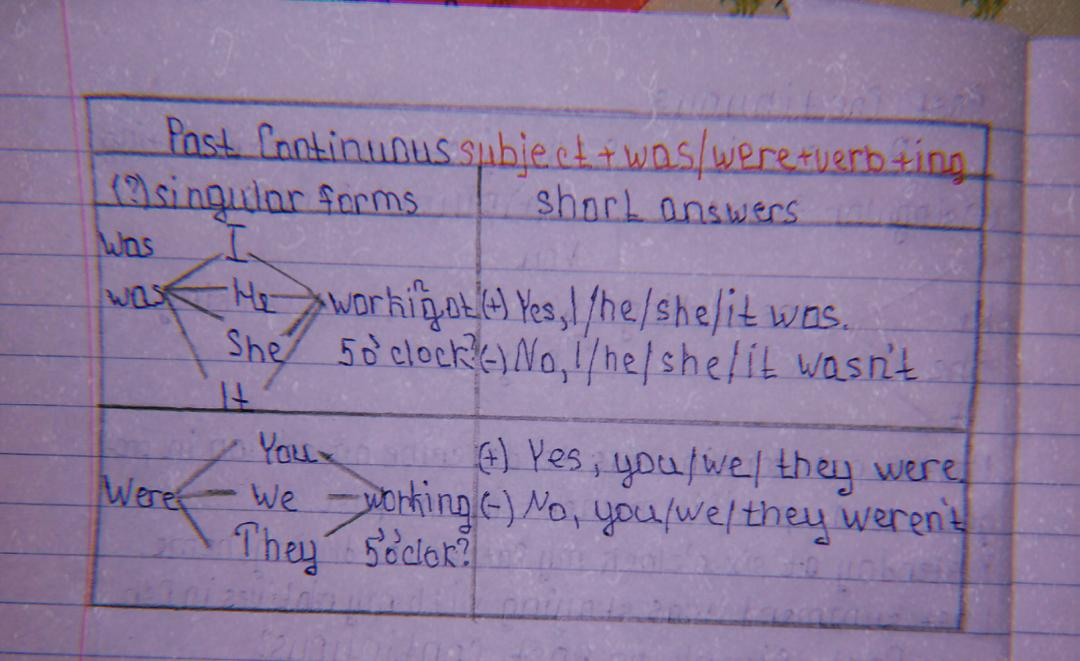 Past Continuous subject + was/were + verb + ing
(?) singular forms
short answers
Was
I
was
He
She
It
working at
5 o'clock?
(+) Yes, I/he/she/it was.
(-) No, I/he/she/it wasn't
Were
You
we
They
working
5 o'clok?
(+) Yes, you/we/they were
(-) No, you/we/they weren't